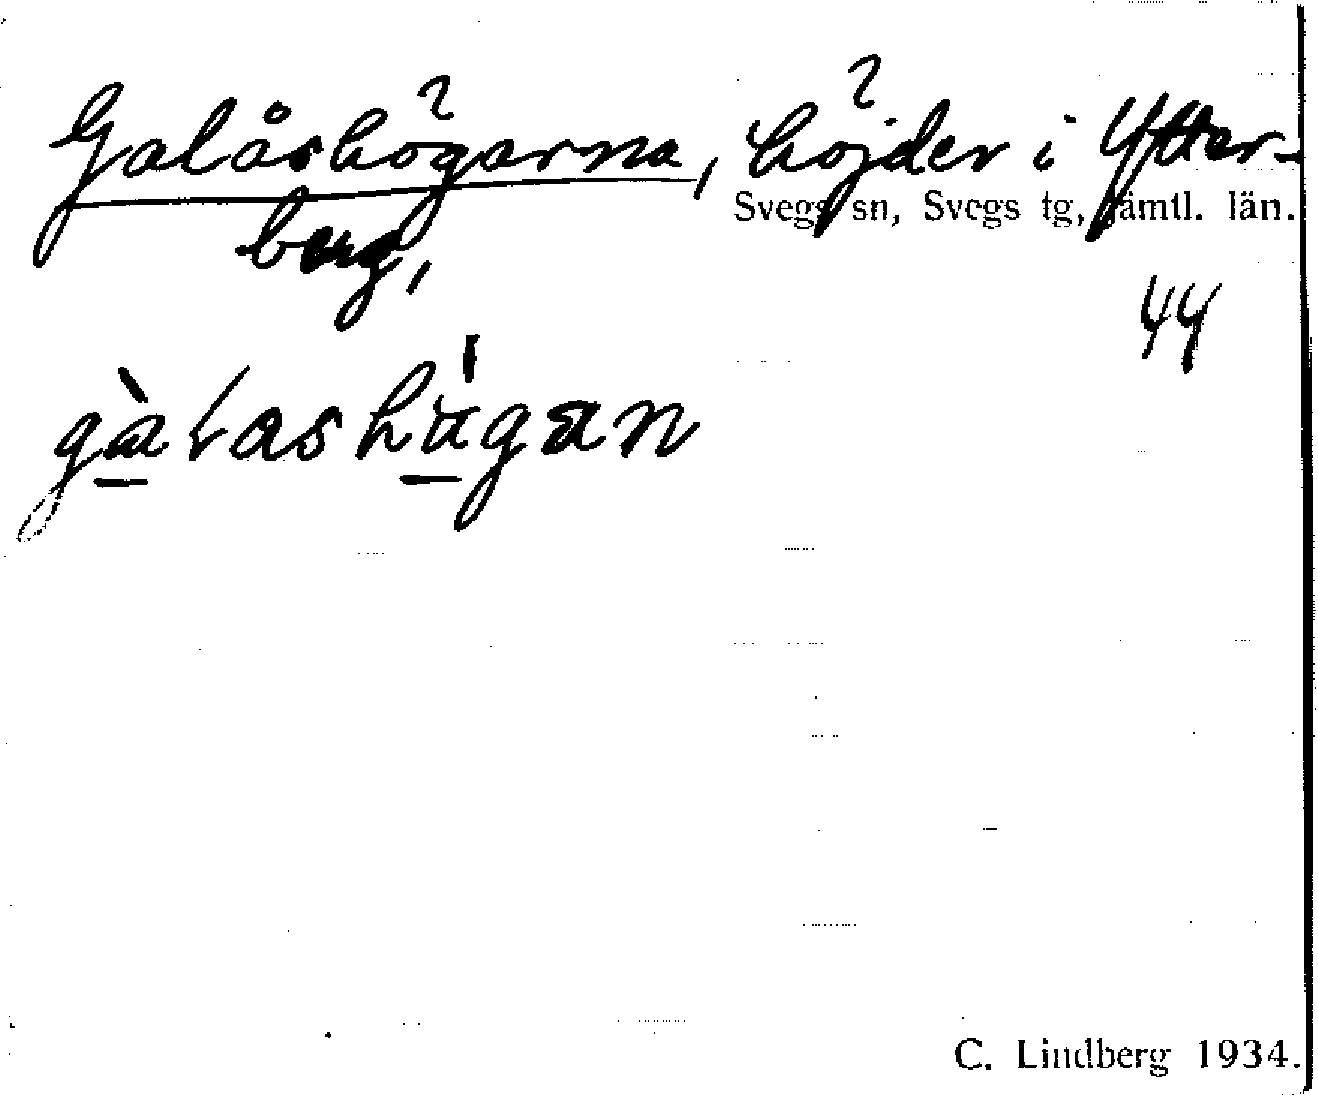 Galåshögarna, höjder i Ytter-
Svegs sn, Svegs tg, Jämtl. län.
berg,
44
gàɽashágan
C. Lindberg 1934.